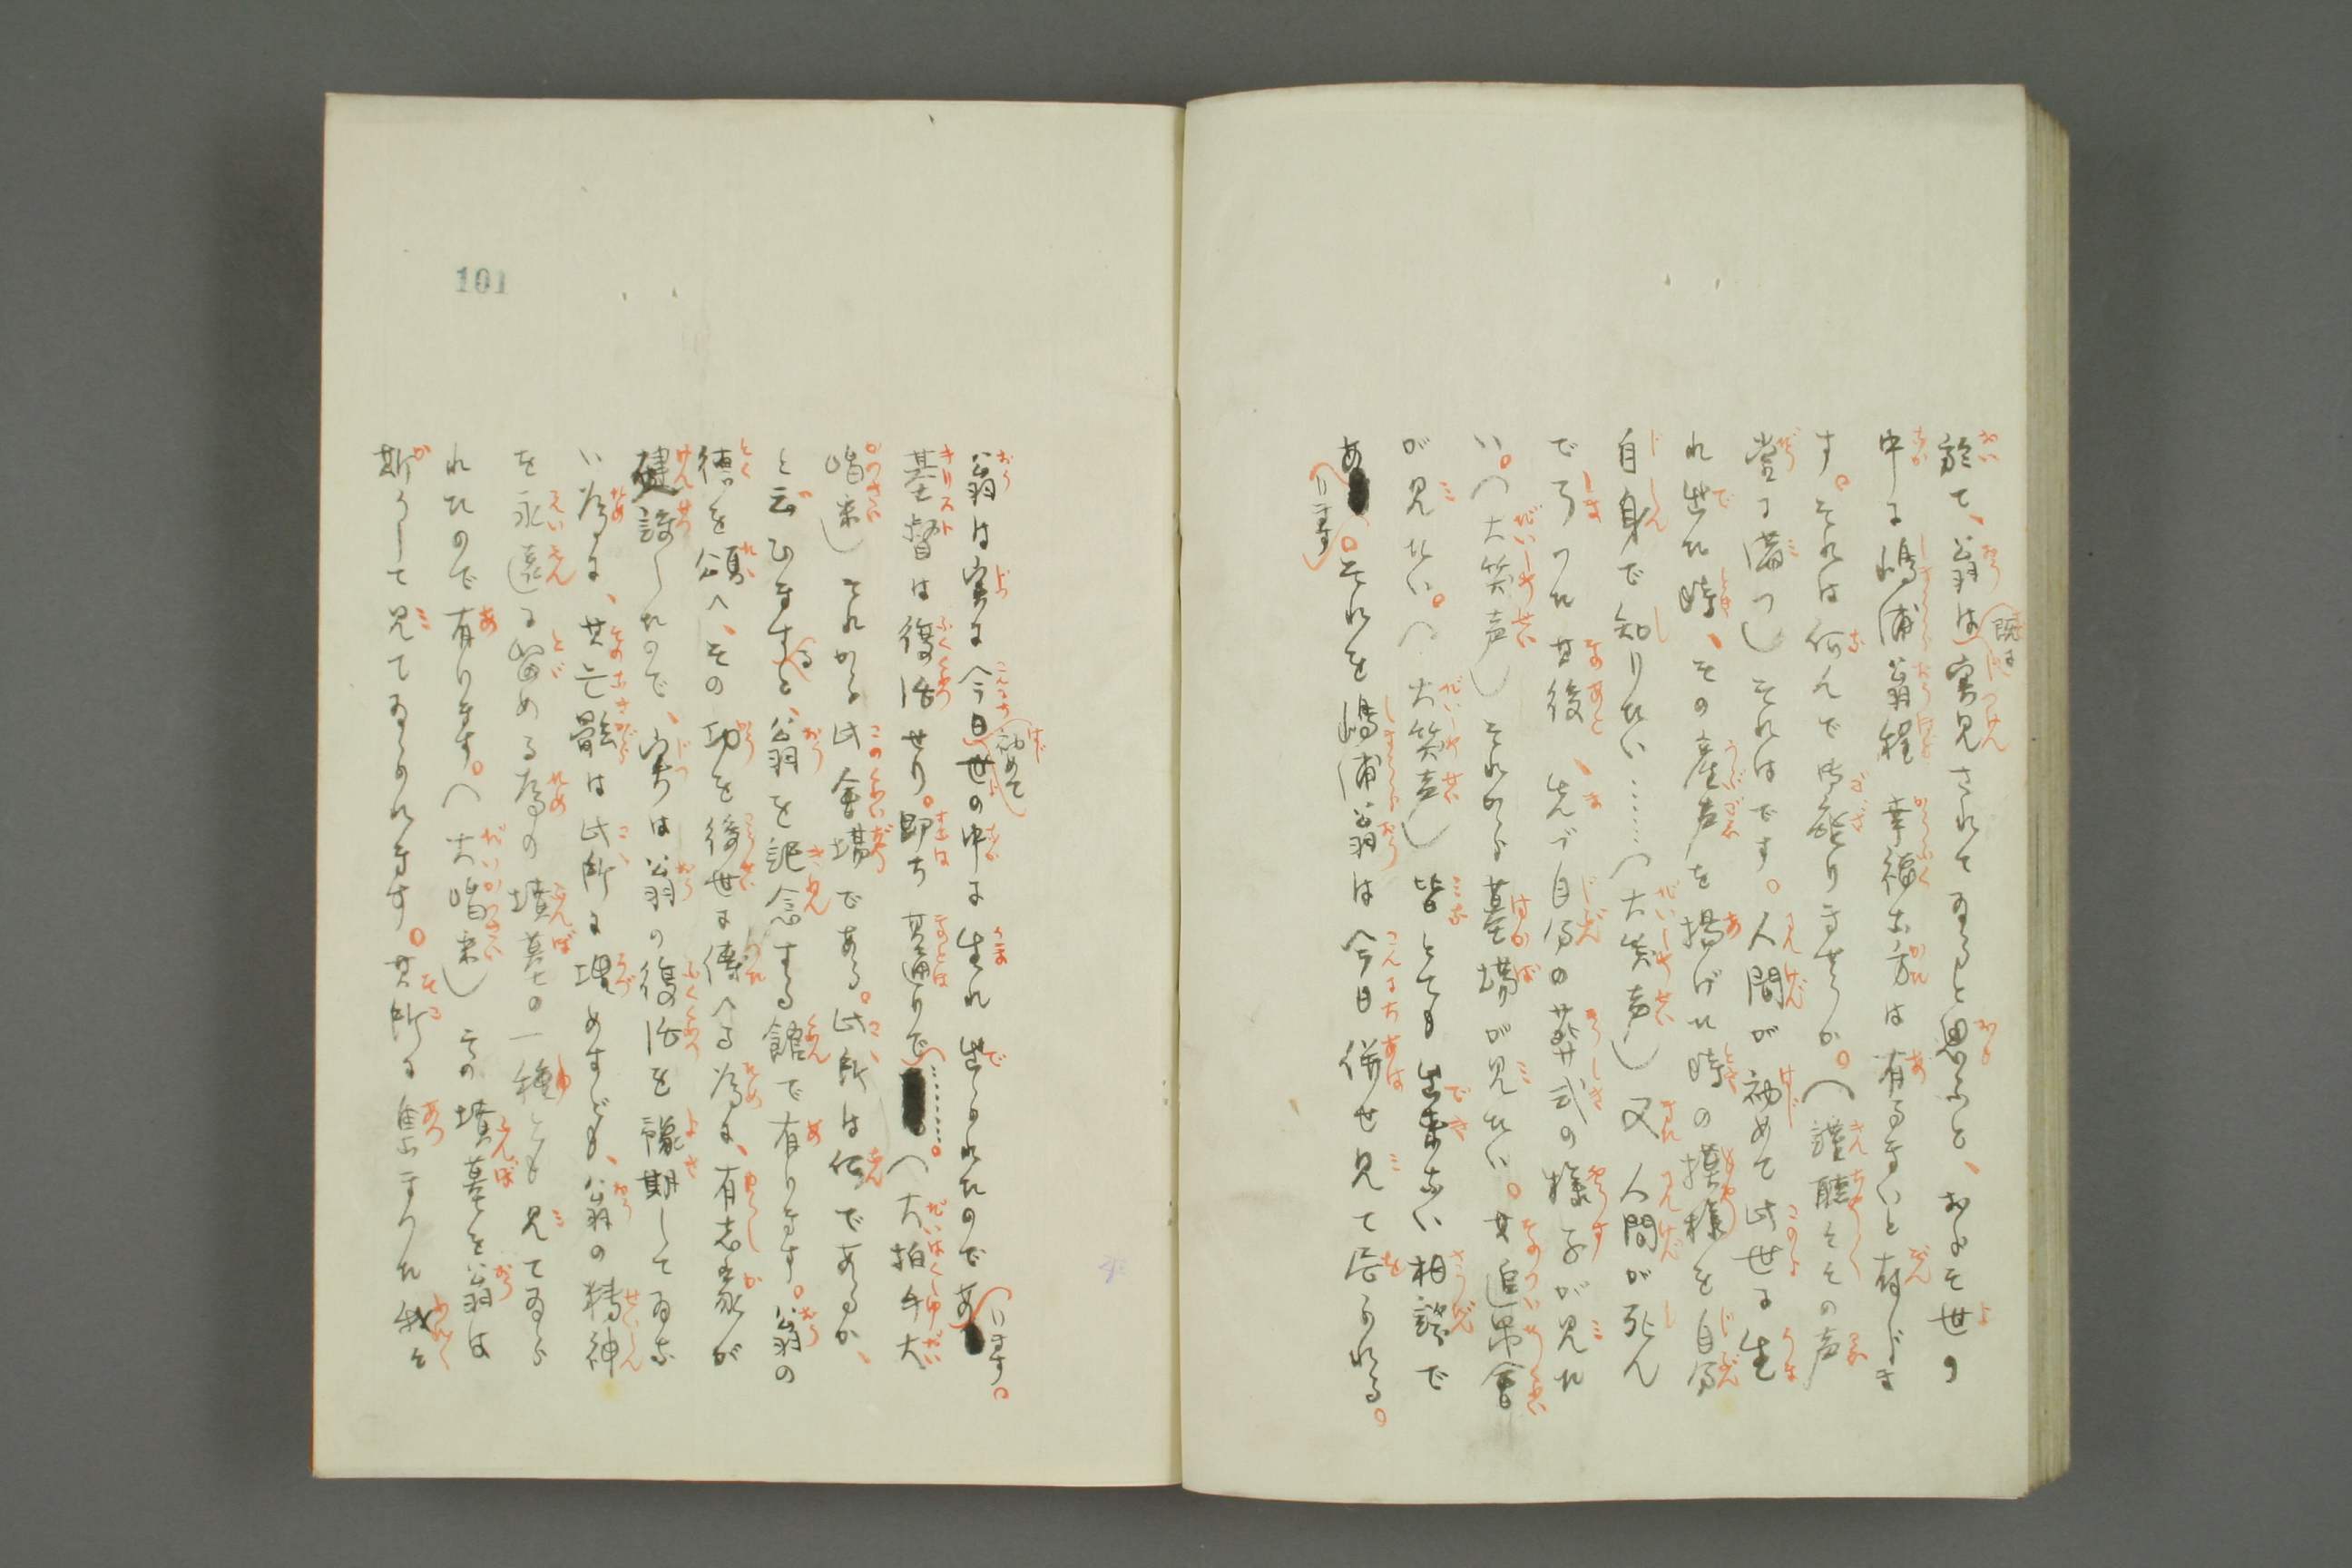 於て、翁は既に実見されてゐると思ふと、およそ世の
中に嶋浦翁程幸福な方は有るまいと存じま
す。それは何んで御座りませうか。(謹聴々々の声
堂に満つ)それはです。人間が初めて此世に生
れ出た時、その産声を揚げた時の模様を自分
自身で知りたい……(大笑声)又人間が死ん
で了つた其後、先づ自分の葬式の様子が見た
い。(大笑声)それから墓場が見たい。其追弔会
が見たい。(大笑声)皆とても出来ない相談で
あります。それを嶋浦翁は今日併せ見て居られる。
翁は実に今日初めて世の中に生れ出られたのであります。
基督は復活せり。即ち其通りで……。(大拍手大
喝采)それから此会場である。此所は何であるか、
と云ひますると、翁を記念する館で有ります。翁の
徳を頌へ、その功を後世に傳へる為に、有志家が
建設したので、実は翁の復活を豫期してゐな
い為に、其亡骸は此所に埋めずども、翁の精神
を永遠に留める為の墳墓の一種とも見てゐら
れたので有ります。(大喝采)その墳墓を翁は
斯うして見てゐられます。其所に集まりた我々
101